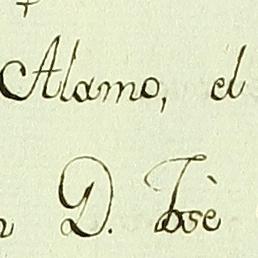 Alamo, el
D. Josè